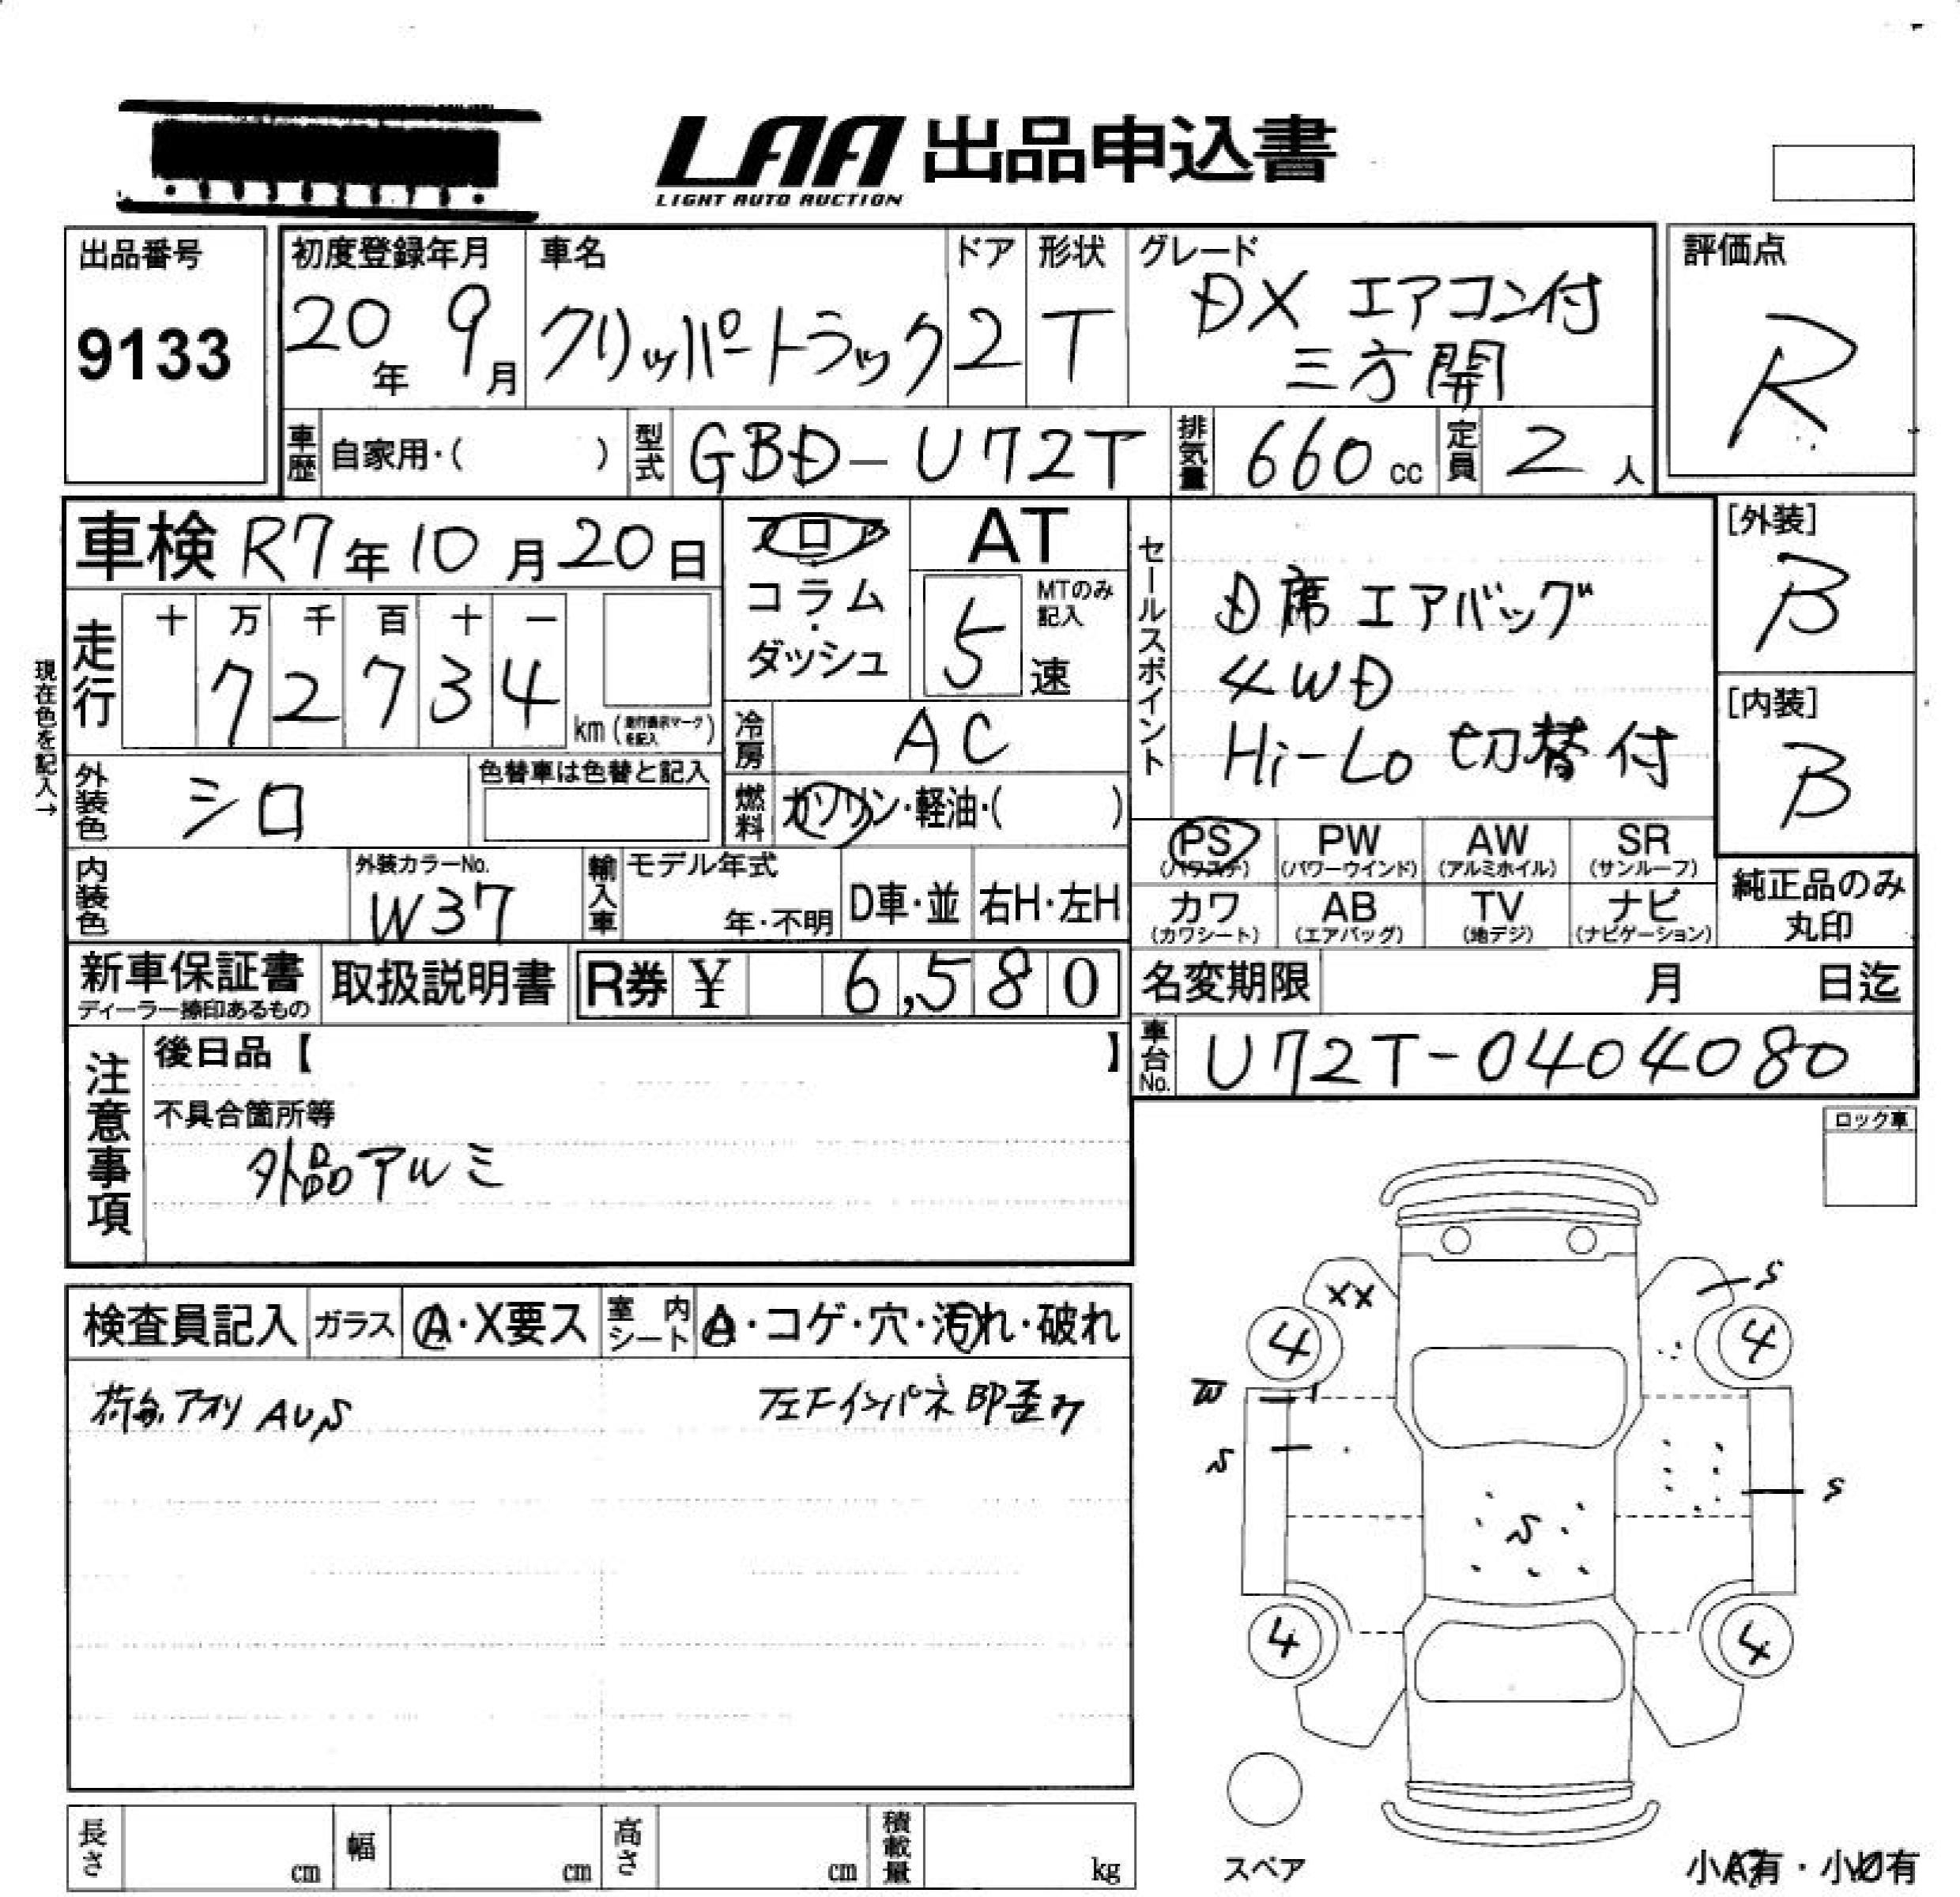 LAA 出品申込書
LIGHT AUTO AUCTION
出品番号
9133
初度登録年月
20年 9月
車名
クリッパートラック
ドア
2
形状
T
グレード
DX エアコン付
三方開
評価点
R
車歴 自家用・( )
型式 GBD-U72T
排気量 660 cc
定員 2 人
車検 R7年10月20日
フロア
コラム
・
ダッシュ
AT
MTのみ
記入
5 速
セールスポイント
D席エアバッグ
4WD
Hi-Lo 切替付
[外装]
B
[内装]
B
現在色を記入→
走行
十 万 千 百 十 一
7 2 7 3 4
km (走行表示マークを記入)
冷房 AC
燃料 ガソリン・軽油・( )
外装色 シロ
色替車は色替と記入
内装色
外装カラーNo.
W37
輸入車
モデル年式
年・不明
D車・並
右H・左H
PS
(パワステ)
PW
(パワーウインド)
AW
(アルミホイル)
SR
(サンルーフ)
カワ
(カワシート)
AB
(エアバッグ)
TV
(地デジ)
ナビ
(ナビゲーション)
純正品のみ
丸印
新車保証書
ディーラー捺印あるもの
取扱説明書
R券 ¥ 6,580
名変期限 月 日迄
車台No. U72T-0404080
注意事項
後日品【 】
不具合箇所等
外品アルミ
ロック車
検査員記入
ガラス A・X要ス
室内シート A・コゲ・穴・汚れ・破れ
荷台アオリ AUS
左Fインパネ 即歪み
XX
S
4
4
W
S
S
S
4
4
スペア
長さ cm
幅 cm
高さ cm
積載量 kg